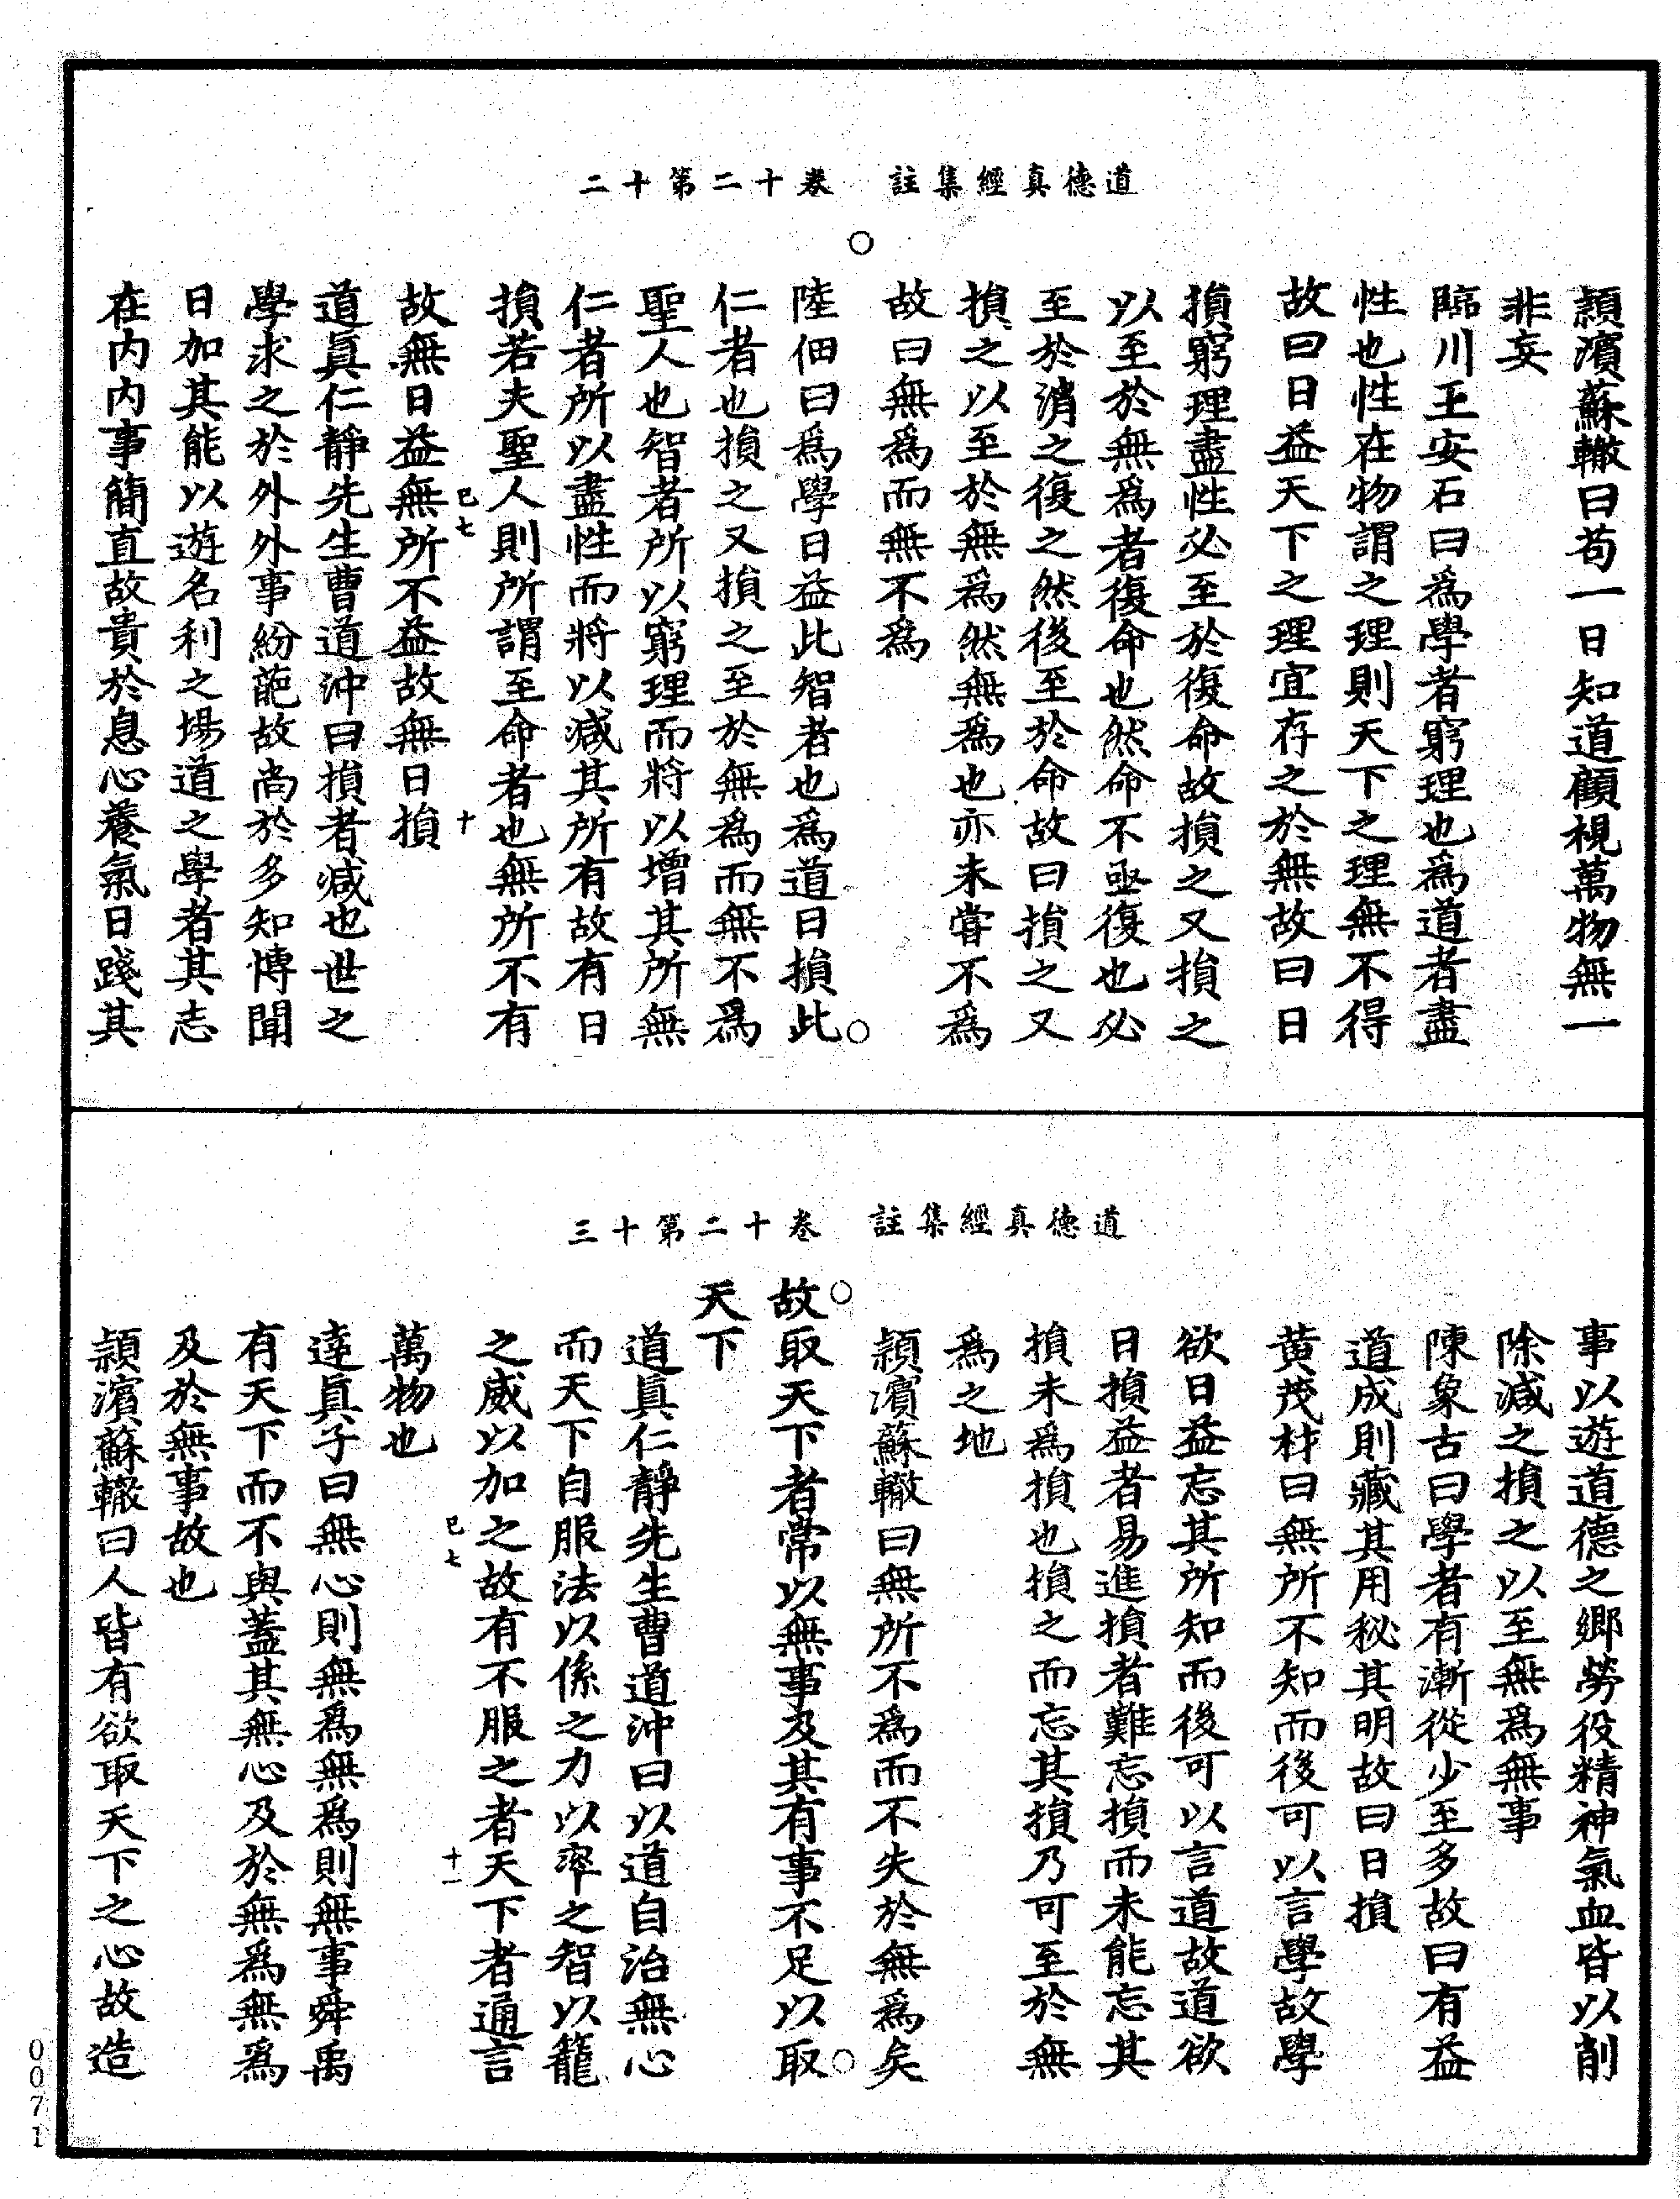 道德真經集註　卷十二第十二
頴濱蘇轍曰苟一日知道顧視萬物無一
非妄
臨川王安石曰爲學者窮理也爲道者盡
性也性在物謂之理則天下之理無不得
故曰日益天下之理宜存之於無故曰日
損窮理盡性必至於復命故損之又損之
以至於無爲者復命也然命不亟復也必
至於消之復之然後至於命故曰損之又
損之以至於無爲然無爲也亦未嘗不爲
故曰無爲而無不爲
陸佃曰爲學日益此智者也爲道日損此
仁者也損之又損之至於無爲而無不爲
聖人也智者所以窮理而將以增其所無
仁者所以盡性而將以減其所有故有日
損若夫聖人則所謂至命者也無所不有
故無日益無所不益故無日損
巳七　十
道眞仁靜先生曹道沖曰損者減也世之
學求之於外外事紛葩故尚於多知博聞
日加其能以遊名利之場道之學者其志
在内内事簡直故貴於息心養氣日踐其
道德真經集註　卷十二第十三
事以遊道德之鄉勞役精神氣血皆以削
除減之損之以至無爲無事
陳象古曰學者有漸從少至多故曰有益
道成則藏其用秘其明故曰日損
黄茂材曰無所不知而後可以言學故學
欲日益忘其所知而後可以言道故道欲
日損益者易進損者難忘損而未能忘其
損未爲損也損之而忘其損乃可至於無
爲之地
頴濱蘇轍曰無所不爲而不失於無爲矣
故取天下者常以無事及其有事不足以取
天下
道眞仁靜先生曹道沖曰以道自治無心
而天下自服法以係之力以率之智以籠
之威以加之故有不服之者天下者通言
巳七　十一
萬物也
達眞子曰無心則無爲無爲則無事舜禹
有天下而不與蓋其無心及於無爲無爲
及於無事故也
頴濱蘇轍曰人皆有欲取天下之心故造
0071